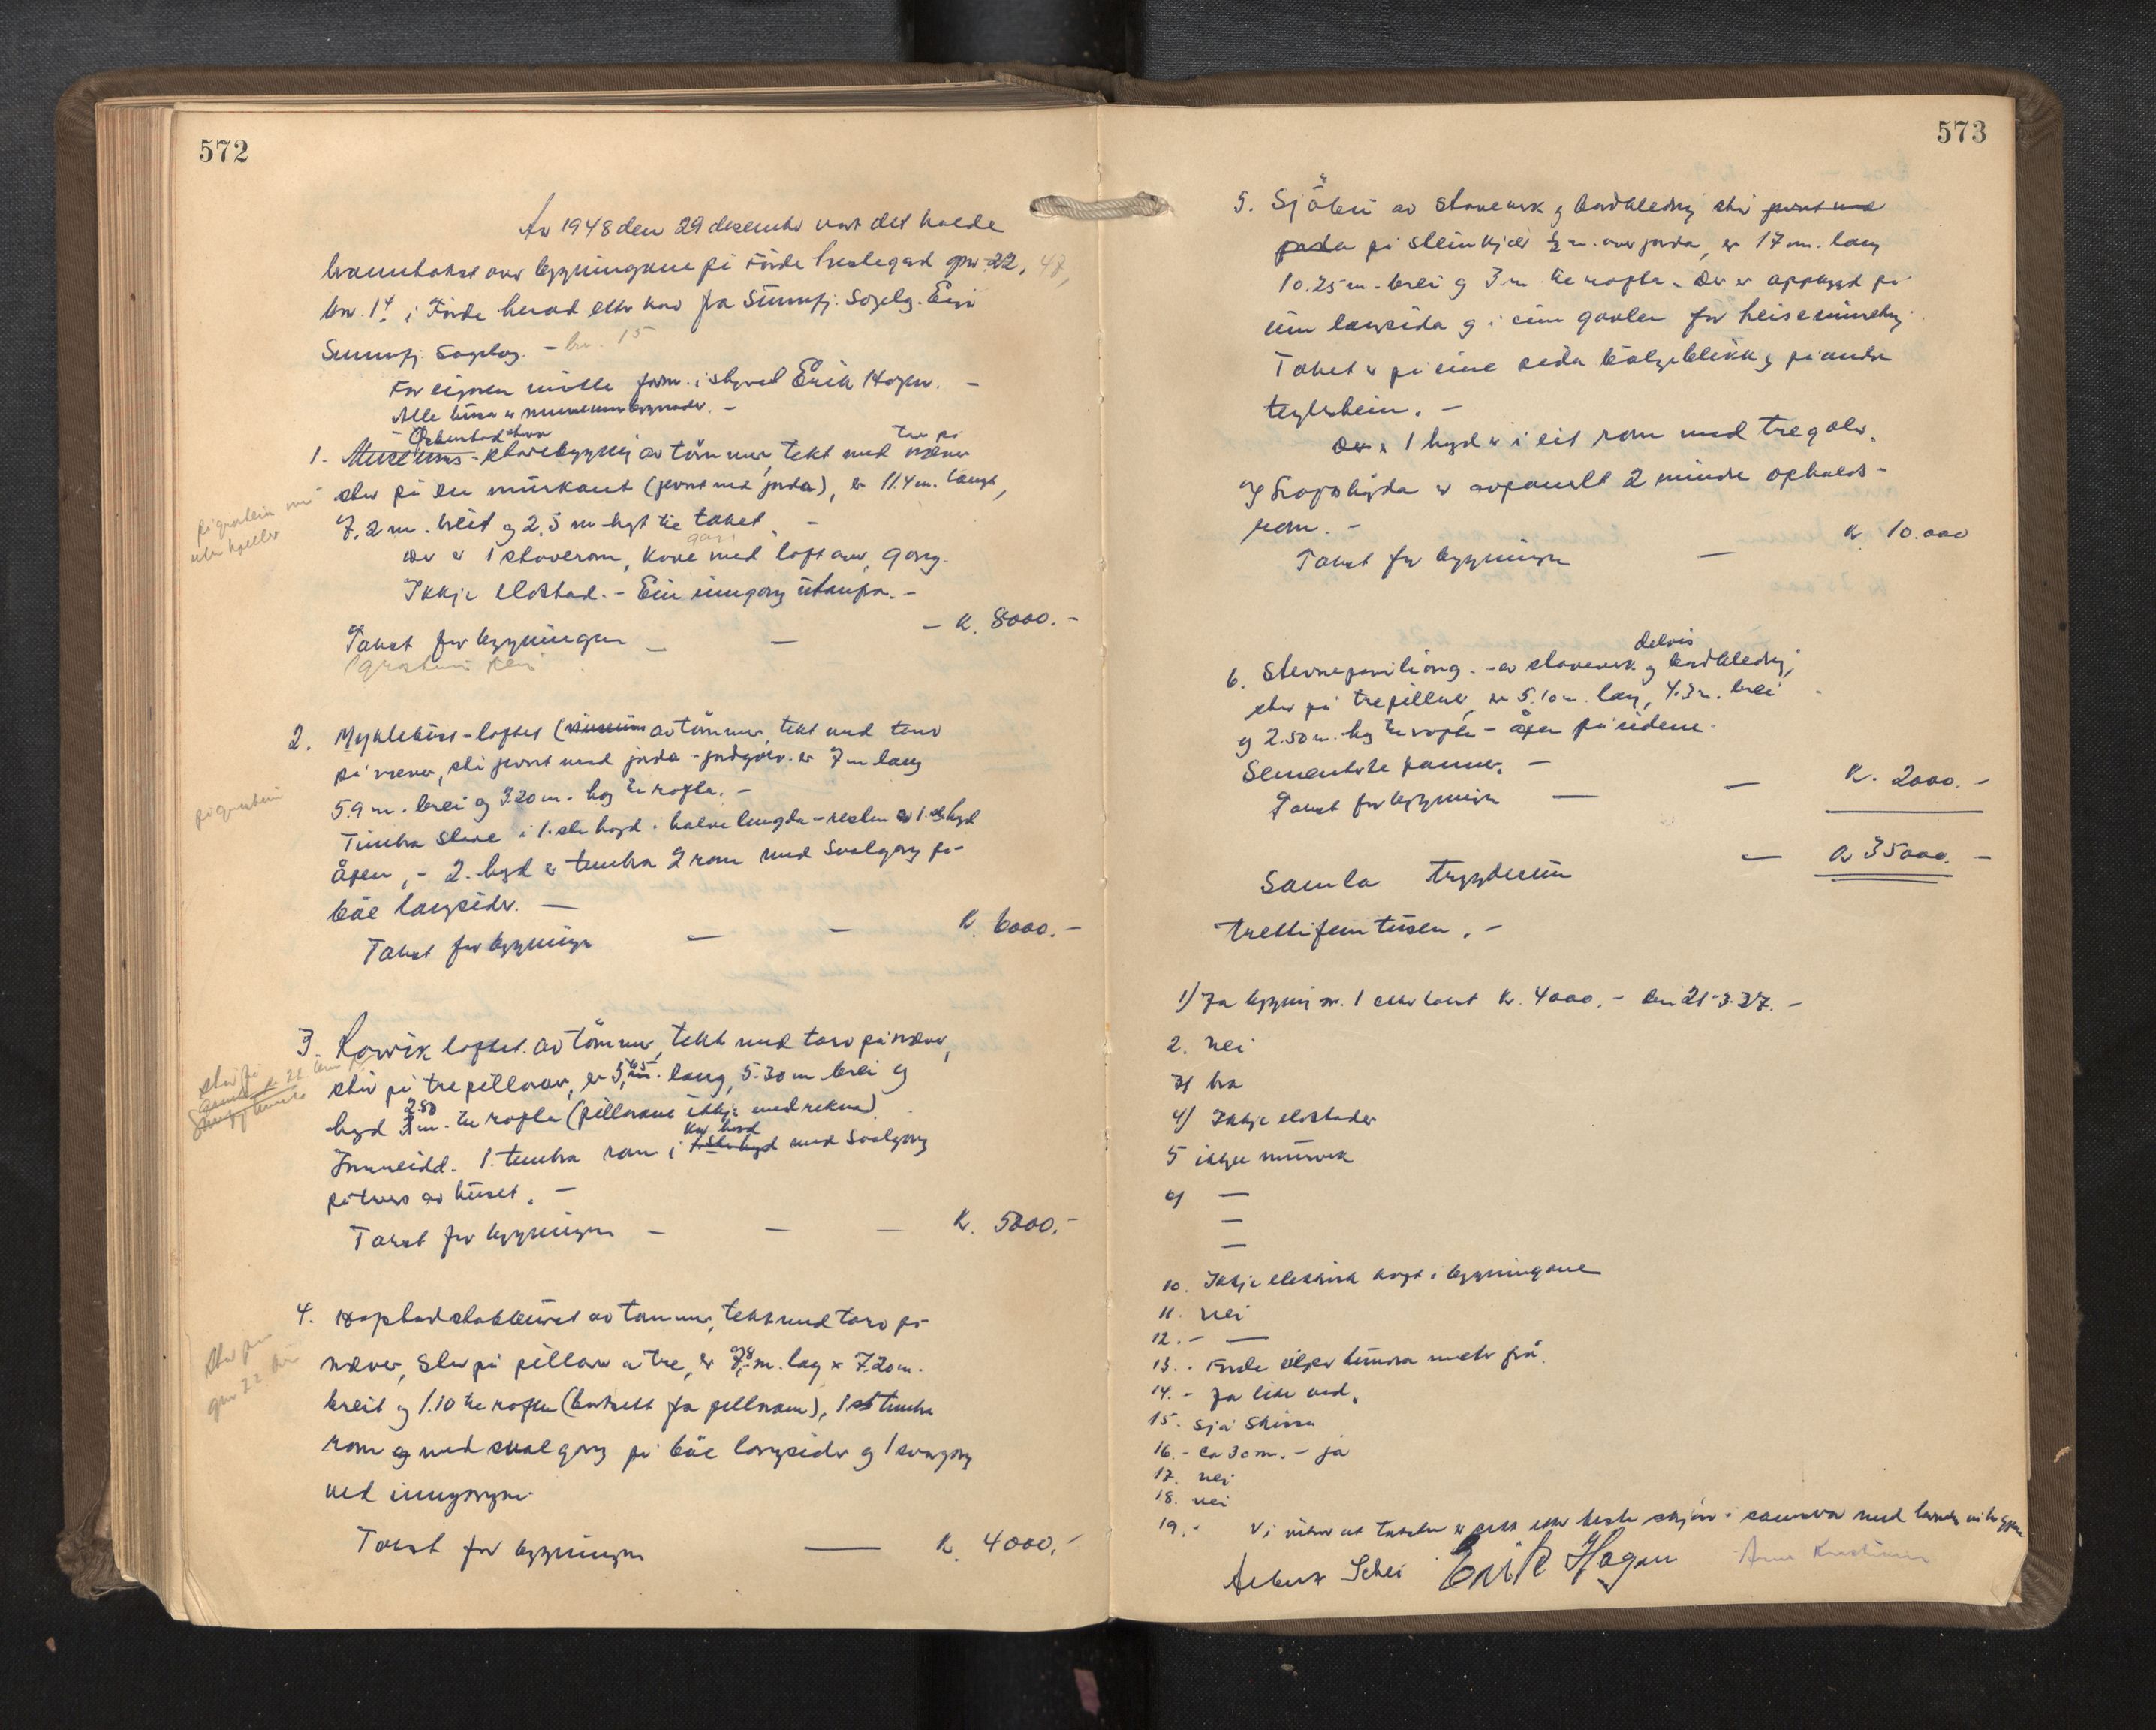 572
År 1948 den 29 desember vart det halde
branntakst over bygningane på Förde prestegard gnr. 22, 47,
bnr. 14 i Förde herad etter krav fra Sunnfj. Sogelag. Eigar
Sunnfj. Sogelag. - bnr. 15
For eigaren møtte form. i styret Erik Hagen. -
Alle husa er museumsbygnader. -
1. Museums-stovebygning av tömmer, tekt med torv på næver
stor på ein murkant (jamt med jorda), er 11.4 m. langt,
7.2 m. breit og 2.5 m. högt til taket. -
Der er 1 stoverom, kove med loft over, gang.
Ikkje eldstad. - Ein inngang utanfra. -
Takst for bygningen - - - K. 8000.-
på gråstein mur
2. Myklebust-loftet (museum av tömmer, tekt med torv
på næver, står jamt med jorda - jordgolv. er 7 m lang
5.9 m. brei og 3.20 m. hög til rafta. -
Timbra stove i 1.ste högd i halve lengda - resten av 1. högd
åpen, - 2. högd er timbra 2 rom med svalgang på
båe langsider. -
Takst for bygningen - - K. 6000.-
på gråstein
3. loftet. av tömmer, tekt med torv på næver,
står på trepillarar, er 5,65 m. lang, 5.30 m brei og
högd 2.50 m. til rafta (pillarane ikkje medrekna)
Innreidd. 1. timbra rom i kvar högd med svalgang
på tvers av huset. -
Takst for bygningen - - - K. 5000.-
står på
4. stabburet av tømmer, tekt med torv på
næver, står på pillarar av tre, er 7,98 m. lag x 7.20 m.
breit og 1.10 til rafta (bortsett fra pillarane), 1 timbra
rom og med svalgang på båe langsider og 1 svalgang
ved inngangen.
Takst for bygningen — K. 4000.-
står på
573
5. Sjöbu av stavverk og bordkledning står jamt med
jorda på steinkjær ½ m. over jorda, er 17 m. lang
10.25 m. brei og 3 m. til rafta. Der er oppbygd på
ein langsida og i ein gavlen for heiseinnretning.
Taket er på eine sida bölgeblikk og på andre
teglstein. -
Der er 1 högd er i eit rom med tregolv.
I framhögda er avpanelt 2 mindre ophalds-
rom. -
Takst for bygningen - K. 10.000
6. Stevnepaviliong. - av stavverk og delvis bordkledning,
står på trepillarar, er 5.10 m. lang, 4.3 m. brei
og 2.50 m. hög til rafta - åpen på sidene.
Sementerte panner. -
Takst for bygningen - - K. 2000.-
Samla trygdesum - K 35000.-
trettifem tusen. -
1) Ja bygning nr. 1 etter takst Kr. 4000.- den 21-3-37. -
2. Nei
3) bra
4) Ikkje eldstader
5 ikkje murverk
6) —
—
—
10. Ikkje elektrisk kraft i bygningane
11. Nei
12. - —
13. - Förde meter frå.
14. - Ja like ved.
15. Sjå skissa
16. - Ca 30 m. - ja
17. nei
18. nei
19. - Vi vitner at taksten er sett etter beste skjön i samsvar med
Albert Schei Erik Hagen